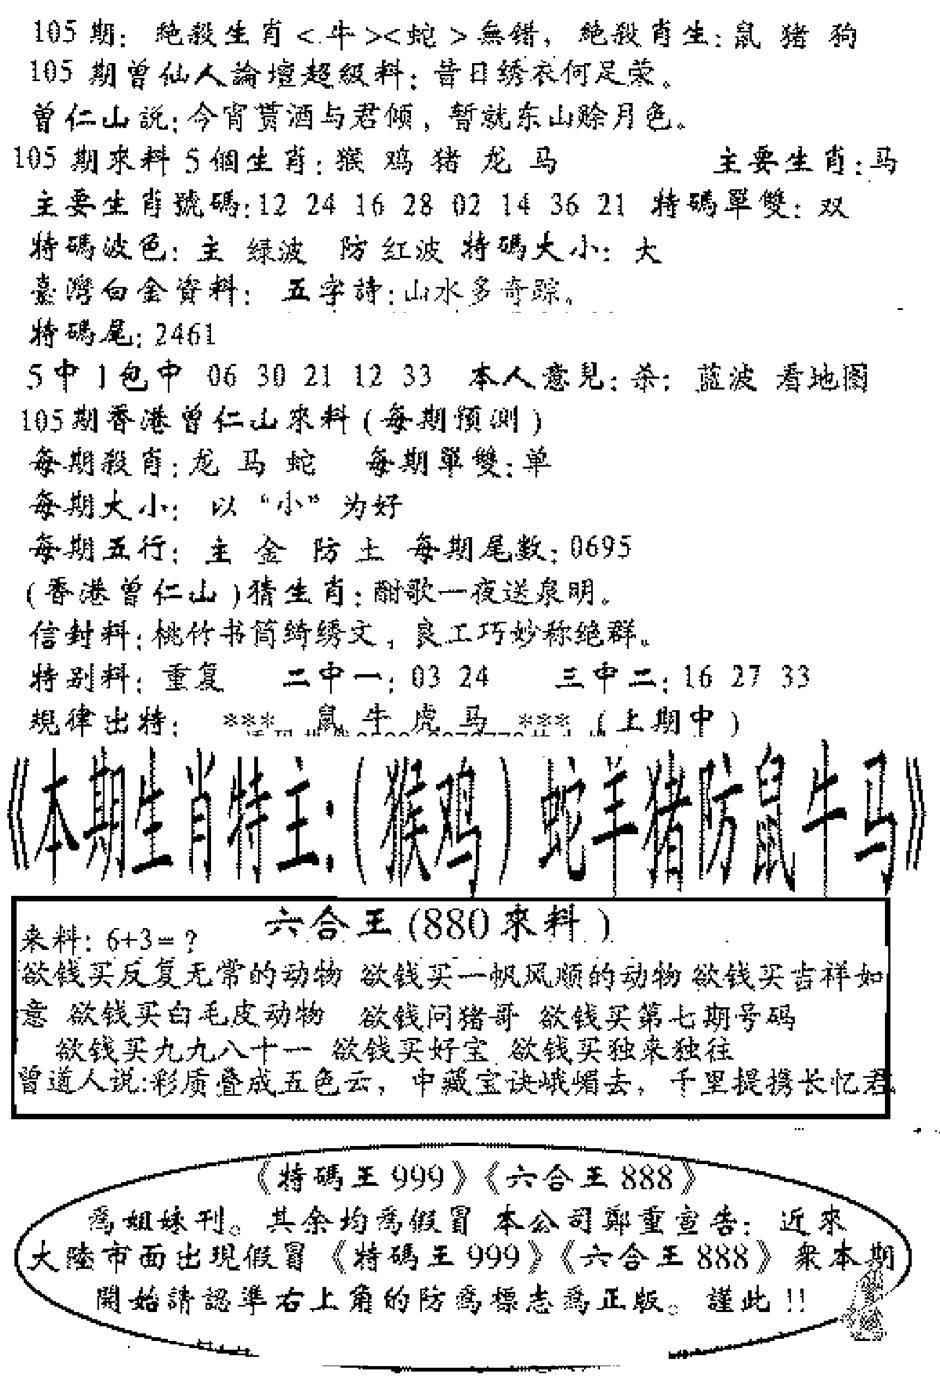 105期: 絶殺生肖<牛><蛇>無錯, 絶殺肖生:鼠 猪 狗
105期曾仙人論壇超級料:昔日绣衣何足荣。
曾仁山説:今宵貰酒与君倾,暫就东山赊月色。
105期來料5個生肖:猴 鸡 猪 龙 马 主要生肖:马
主要生肖號碼:12 24 16 28 02 14 36 21 特碼單雙:双
特碼波色:主 绿波 防 红波 特碼大小:大
臺灣白金資料: 五字詩:山水多奇踪。
特碼尾:2461
5中1包中 06 30 21 12 33 本人意見:杀: 蓝波 看地图
105期香港曾仁山來料(每期預测)
每期殺肖:龙 马 蛇 每期單雙:单
每期大小: 以“小”为好
每期五行: 主 金 防 土 每期尾数:0695
(香港曾仁山)猜生肖:酣歌一夜送泉明。
信封料:桃竹书筒绮绣文,良工巧妙称绝群。
特别料:重复 二中一:03 24 三中二:16 27 33
規律出特: *** 鼠 牛 虎 马 *** (上期中)
《本期生肖特主:(猴鸡)蛇羊猪防鼠牛马》
六合王(880來料)
来料:6+3=?
欲钱买反复无常的动物 欲钱买一帆风顺的动物 欲钱买吉祥如
意 欲钱买白毛皮动物 欲钱问猪哥 欲钱买第七期号码
欲钱买九九八十一 欲钱买好宝 欲钱买独来独往
曾道人说:彩质叠成五色云,中藏宝诀峨嵋去,千里提携长忆君
《特碼王999》《六合王888》
爲姐妹刊。其余均爲假冒 本公司鄭重宣告: 近來
大陸市面出現假冒《特碼王999》《六合王888》衆本期
開始請認準右上角的防爲標志爲正版。 謹此!!